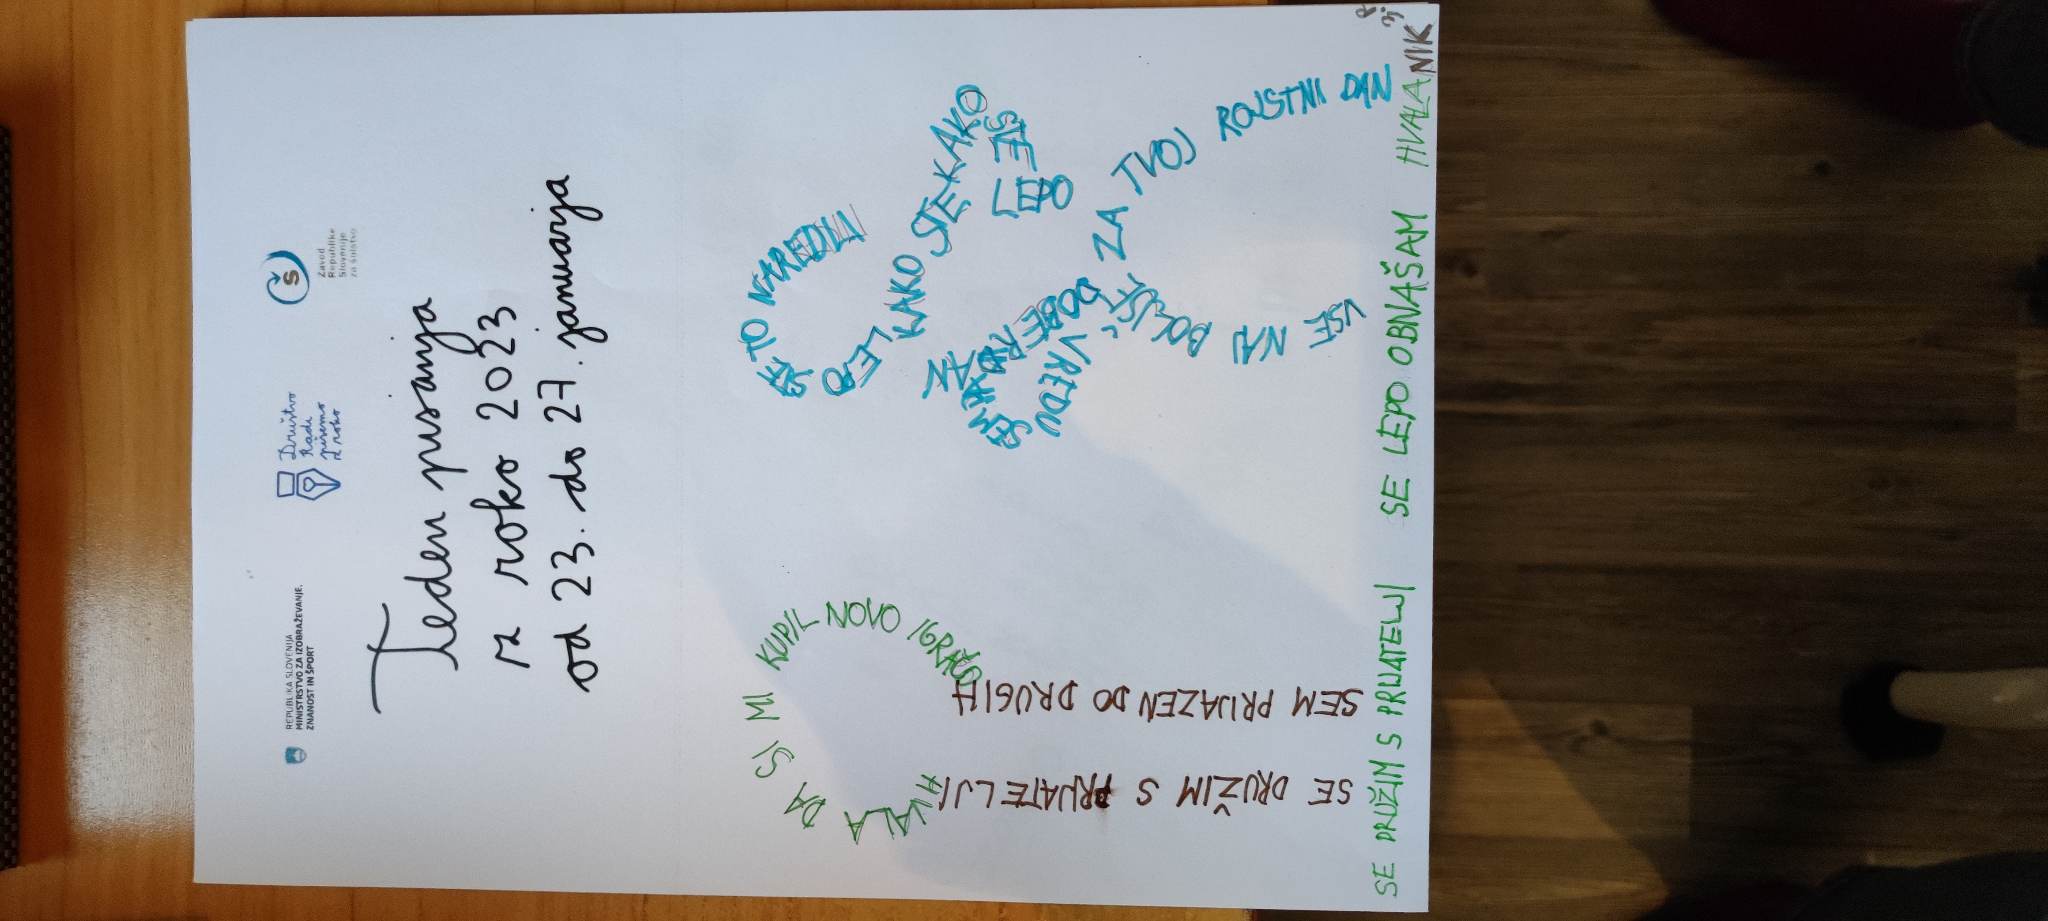 REPUBLIKA SLOVENIJA
MINISTRSTVO ZA IZOBRAŽEVANJE,
ZNANOST IN ŠPORT
Društvo
Radi
pišemo
z roko
Zavod
Republike
Slovenije
za šolstvo
Teden pisanja
z roko 2023
od 23. do 27. januarja
HVALA DA SI MI KUPIL NOVO IGRAČO
SEM PRIJAZEN DO DRUGIH
SE DRUŽIM S PRIJATELJI
STE TO NAREDILI
LEPO
KAKO STE KAKO
STE
LEPO
DOBER DAN
SEM
VREDU
VSE NAJ BOLJŠE ZA TVOJ ROJSTNI DAN
SE DRUŽIM S PRIJATELJI SE LEPO OBNAŠAM HVALA
NIK